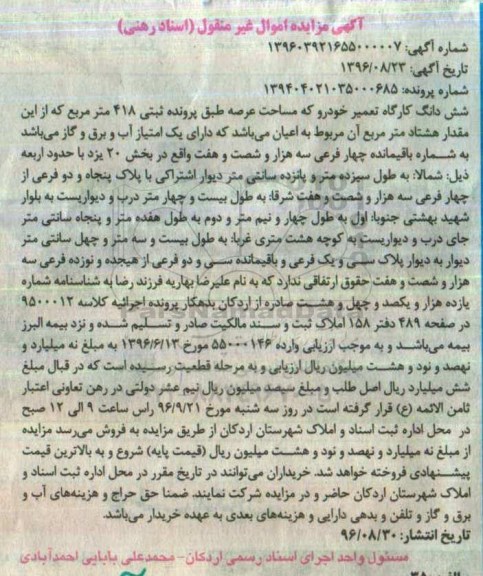 آگهی مزایده اموال غیر منقول (اسناد رهنی)
شماره آگهی: ۱۳۹۶۰۳۹۲۱۶۵۵۰۰۰۰۰۷
تاریخ آگهی: ۱۳۹۶/۰۸/۲۳
شماره پرونده: ۱۳۹۴۰۴۰۲۱۰۳۵۰۰۰۶۸۵
شش دانگ کارگاه تعمیر خودرو که مساحت عرصه طبق پرونده ثبتی ۴۱۸ متر مربع که از این
مقدار هشتاد متر مربع آن مربوط به اعیان می‌باشد که دارای یک امتیاز آب و برق و گاز می‌باشد
به شماره باقیمانده چهار فرعی سه هزار و شصت و هفت واقع در بخش ۲۰ یزد با حدود اربعه
ذیل: شمالا: به طول سیزده متر و پانزده سانتی متر دیوار اشتراکی با پلاک پنجاه و دو فرعی از
چهار فرعی سه هزار و شصت و هفت شرقا: به طول بیست و چهار متر درب و دیواریست به بلوار
شهید بهشتی جنوبا: اول به طول چهار و نیم متر و دوم به طول هفده متر و پنجاه سانتی متر
جای درب و دیواریست به کوچه هشت متری غربا: به طول بیست و سه متر و چهل سانتی متر
دیوار به دیوار پلاک سی و یک فرعی و باقیمانده سی و دو فرعی از هیجده و نوزده فرعی سه
هزار و شصت و هفت حقوق ارتفاقی ندارد که به نام علیرضا بهاریه فرزند رضا به شناسنامه شماره
یازده هزار و یکصد و چهل و هشت صادره از اردکان بدهکار پرونده اجرائیه کلاسه ۹۵۰۰۰۱۳
در صفحه ۴۸۹ دفتر ۱۵۸ املاک ثبت و سند مالکیت صادر و تسلیم شده و نزد بیمه البرز
بیمه می‌باشد و به موجب ارزیابی وارده ۵۵۰۰۰۱۴۶ مورخ ۱۳۹۶/۶/۱۳ به مبلغ نه میلیارد و
نهصد و نود و هشت میلیون ریال ارزیابی و به مرحله قطعیت رسیده است که در قبال مبلغ
شش میلیارد ریال اصل طلب و مبلغ سیصد میلیون ریال نیم عشر دولتی در رهن تعاونی اعتبار
ثامن الائمه (ع) قرار گرفته است در روز سه شنبه مورخ ۹۶/۹/۲۱ راس ساعت ۹ الی ۱۲ صبح
در محل اداره ثبت اسناد و املاک شهرستان اردکان از طریق مزایده به فروش می‌رسد مزایده
از مبلغ نه میلیارد و نهصد و نود و هشت میلیون ریال (قیمت پایه) شروع و به بالاترین قیمت
پیشنهادی فروخته خواهد شد. خریداران می‌توانند در تاریخ مقرر در محل اداره ثبت اسناد و
املاک شهرستان اردکان حاضر و در مزایده شرکت نمایند. ضمنا حق حراج و هزینه‌های آب و
برق و گاز و تلفن و بدهی دارایی و هزینه‌های بعدی به عهده خریدار می‌باشد.
تاریخ انتشار: ۹۶/۰۸/۳۰
مسئول واحد اجرای اسناد رسمی اردکان- محمدعلی بابایی احمدآبادی